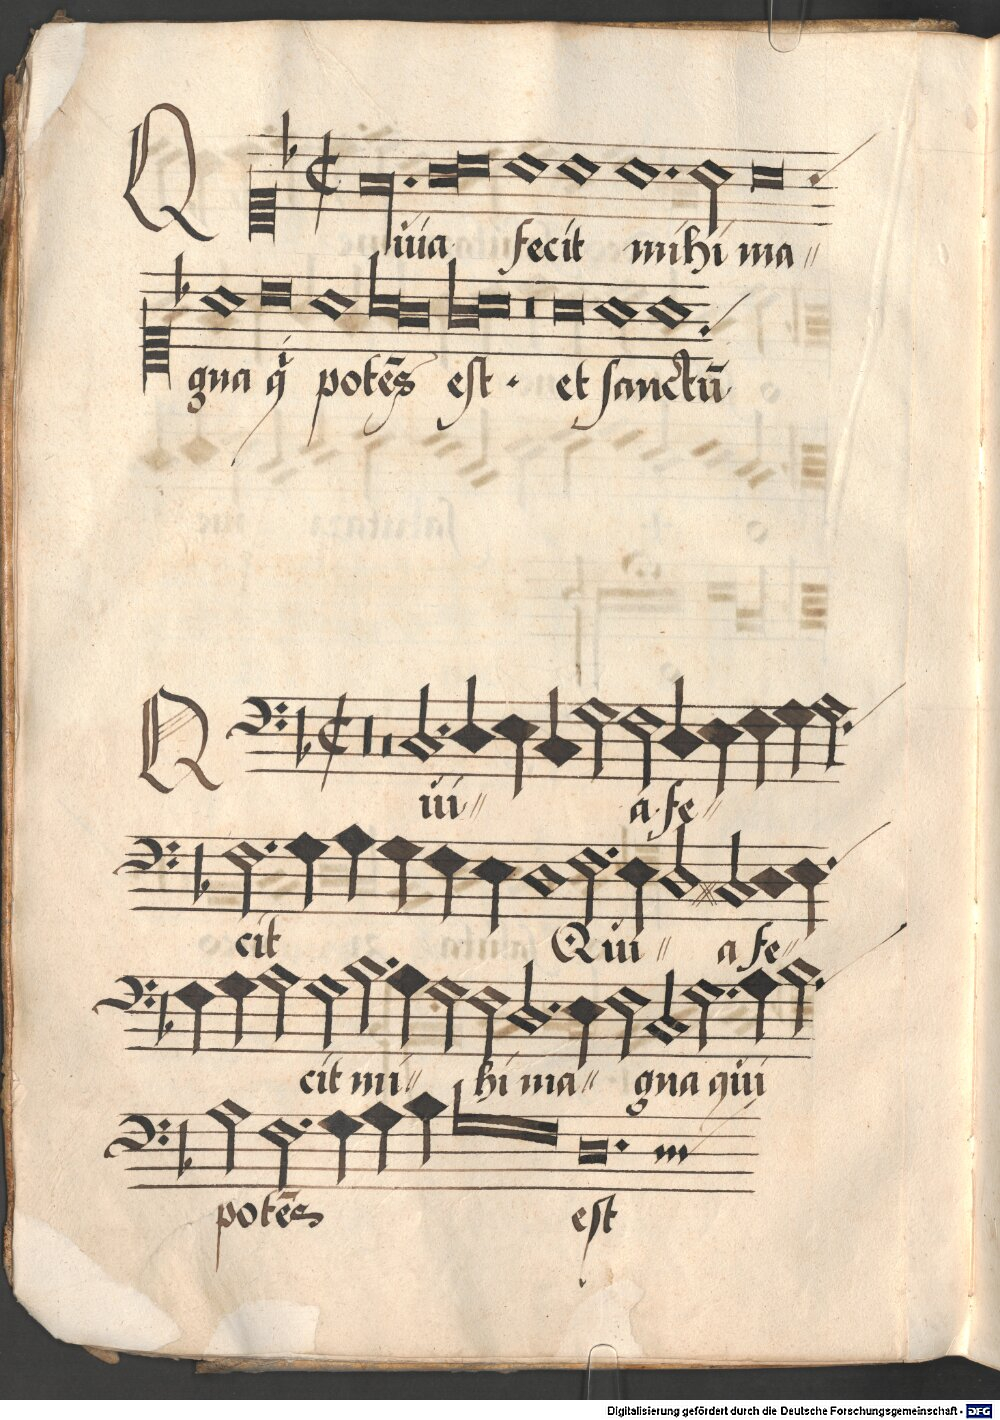 Quia fecit mihi ma〃
gna q̇ potēs est · et sanctū
Qui〃 a fe〃
cit Qui〃 a fe〃
cit mi〃 hi ma〃 gna qui
potēs est
Digitalisierung gefördert durch die Deutsche Forschungsgemeinschaft - DFG